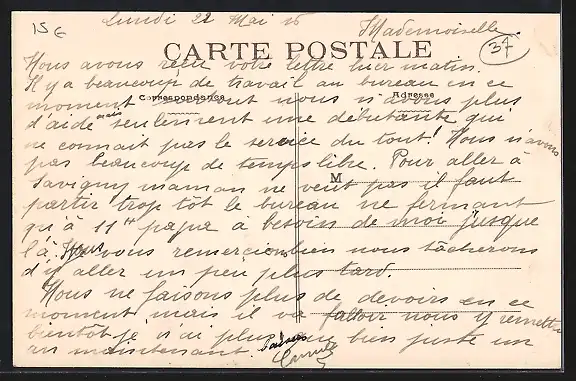 15 €
37
Lundi 22 Mai 16
Mademoiselle.
CARTE POSTALE
Correspondance
Adresse
M
Nous avons reçu votre lettre hier matin.
Il y a beaucoup de travail au bureau en ce
moment surtout nous n'avons plus
d'aide mais seulement une débutante qui
ne connait pas le service du tout! Nous n'avons
pas beaucoup de temps libre. Pour aller à
Savigny maman ne veut pas il faut
partir trop tôt le bureau ne fermant
qu'à 11h papa à besoin de moi jusque
là. Nous vous remercions bien nous tâcherons
d'y aller un peu plus tard.
Nous ne faisons plus de devoirs en ce
moment mais il va falloir nous y remettre
bientôt je n'ai plus bien juste un
an maintenant. Baisers